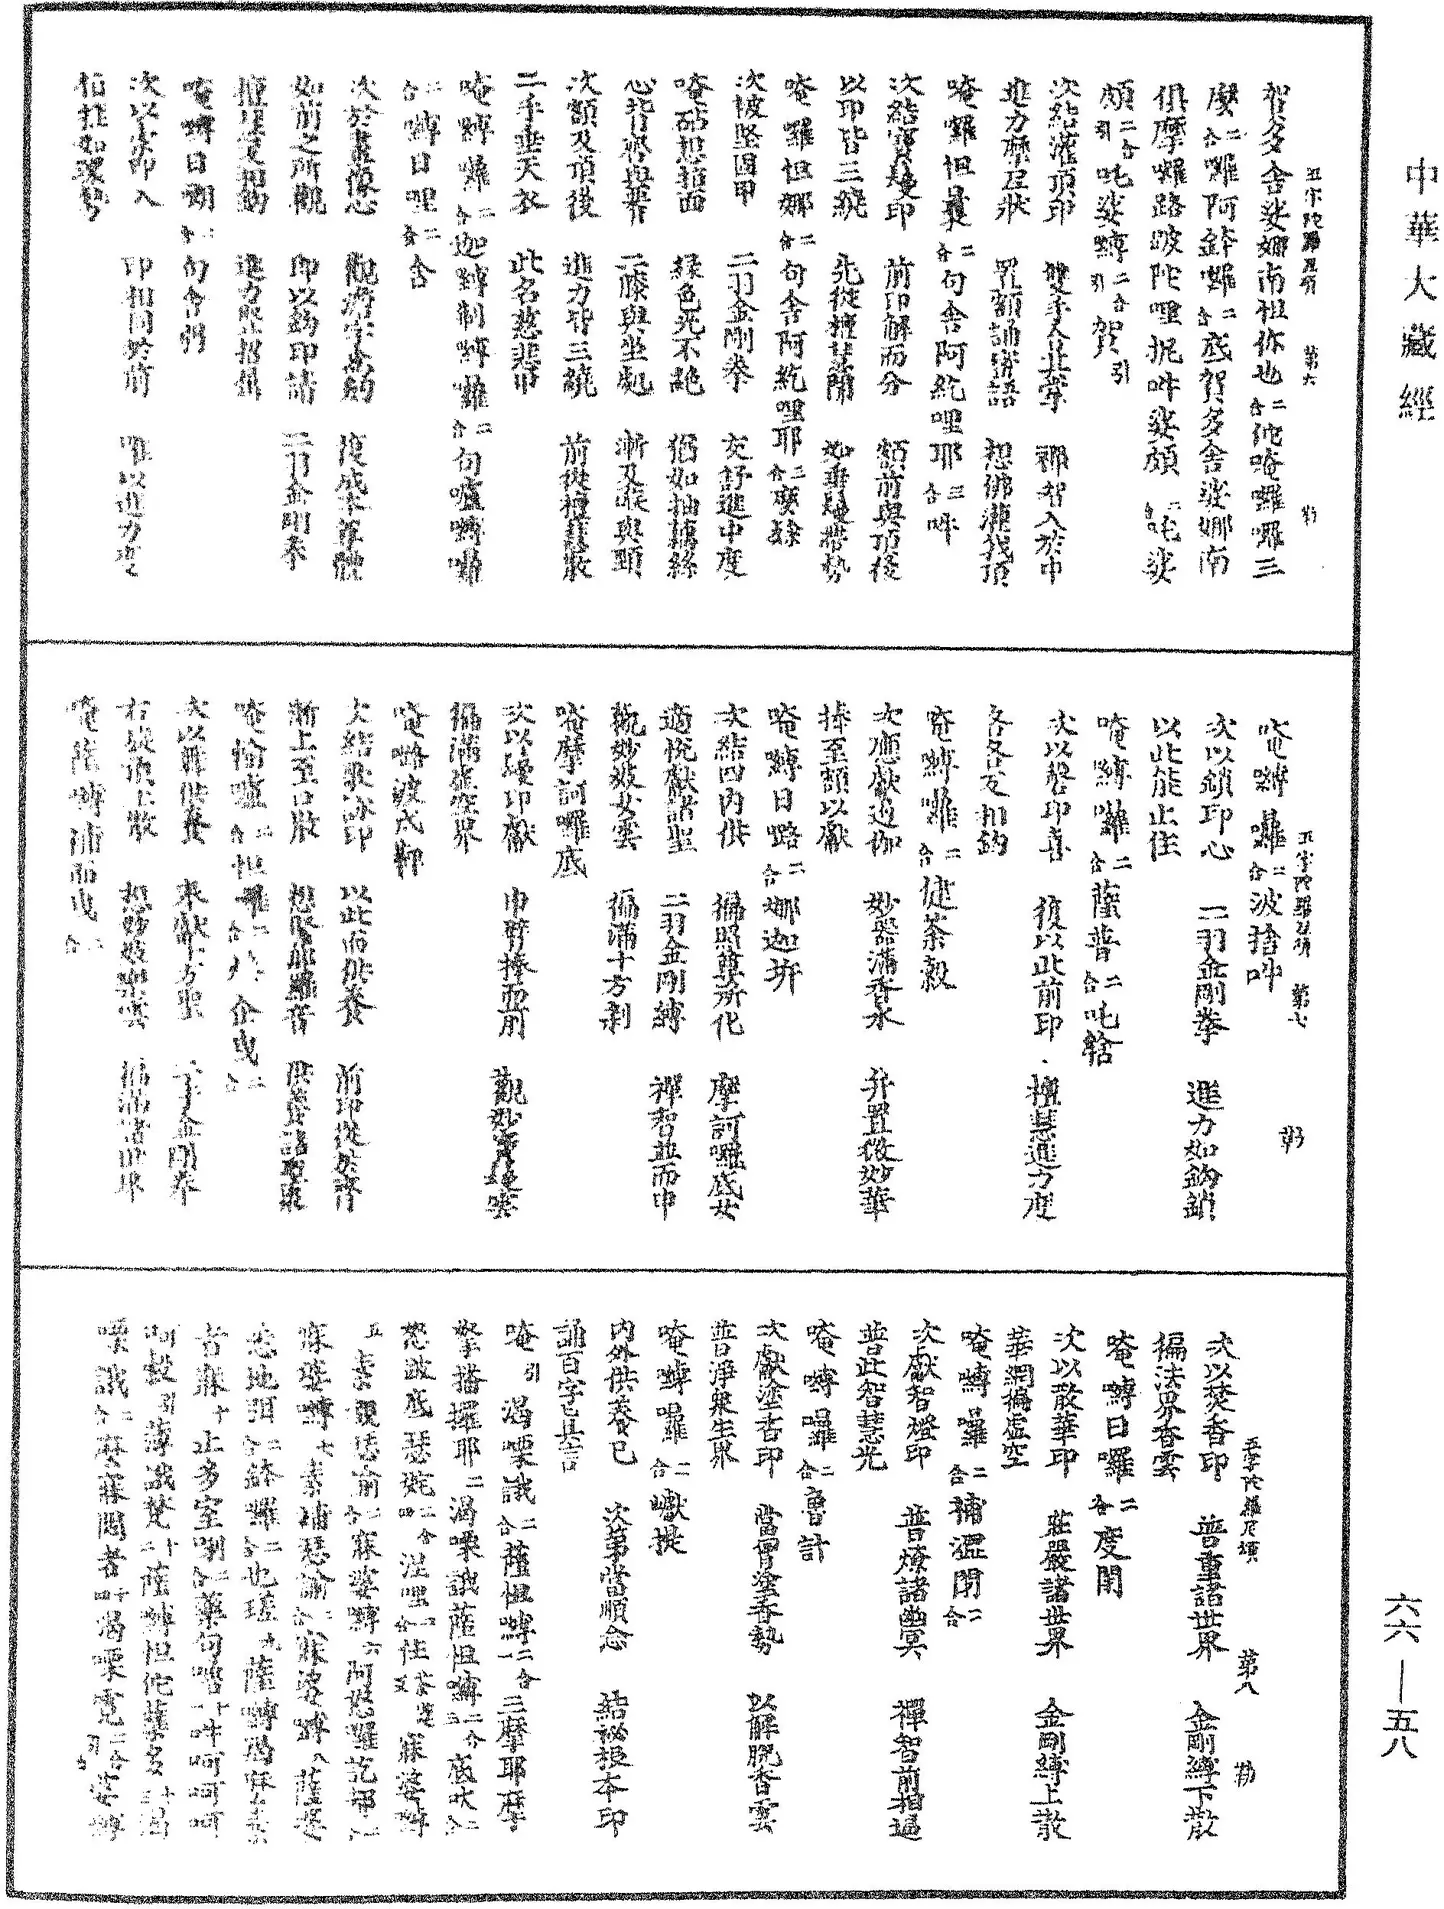 中華大藏經
五字陀羅尼頌 第六 勒
賀多舍娑娜南怛你也二合他唵囉囉三
麼二合囉阿鉢囉二合底賀多舍娑娜南
俱摩囉路波陀哩抳吽娑頗二合吒娑
頗二合引吒娑嚩二合引賀引
次結灌頂印 雙手金剛掌 禪智入於中
進力摩尼狀 置額誦密語 想佛灌我頂
唵囉怛曩二合句舍阿紇哩耶三合吽
次結寶鬘印 前印解而分 額前與頂後
以印皆三繞 先從檀慧開 如垂鬘帶勢
唵囉怛娜二合句舍阿紇哩耶三合麼隸
次被堅固甲 二羽金剛拳 交舒進力度
唵砧想指面 綠色光不絕 猶如抽藕絲
心背臍與腰 二膝與坐處 漸及喉與頸
次額及頂後 進力皆三繞 前從檀慧散
二手垂天衣 此名慈悲甲
唵嚩囉二合迦嚩制嚩囉二合句嚧嚩囉
二合嚩日哩二合含
次於畫像心 觀滿字為鉤 復成本尊體
如前之所觀 即以鉤印請 二羽金剛拳
檀慧反相鉤 進力竪招集
唵嚩日朗二合句舍弱
次以索印入 印相同於前 唯以進力度
相拄如環勢
五字陀羅尼頌 第七 勒
唵嚩囉二合波捨吽
次以鎖印心 二羽金剛拳 進力如鉤鎖
以此能止住
唵嚩囉二合薩普二合吒鎫
次以磬印喜 復以此前印 檀慧進力度
各各互相鉤
唵嚩囉二合健荼穀
次應獻遏伽 妙器滿香水 并置微妙華
捧至額以獻
唵嚩日路二合娜迦吽
次結四內供 徧照尊所化 摩訶囉底女
適悅獻諸聖 二羽金剛縛 禪智並而申
觀妙妓女雲 徧滿十方剎
唵摩訶囉底
次以鬘印獻 申臂捧而前 觀妙寶鬘雲
徧滿虛空界
唵嚕波戍鞞
次結歌詠印 以此而供養 前印從臍許
漸上至口散 想緊那羅音 供養諸聖眾
唵輸嚧二合怛囉二合 企曳二合
次以舞供養 來獻十方聖 二手金剛拳
右旋頂上散 想妙妓樂雲 徧滿諸世界
唵薩嚩 而曳二合
五字陀羅尼頌 第八 勒
次以焚香印 普熏諸世界 金剛縛下散
徧法界香雲
唵嚩日囉二合度閉
次以散華印 莊嚴諸世界 金剛縛上散
華網徧虛空
唵嚩囉二合補澀閉二合
次獻智燈印 普燎諸幽冥 禪智前相逼
普此智慧光
唵嚩囉二合魯計
次獻塗香印 當胷塗香勢 以解脫香雲
普淨眾生界
唵嚩囉二合巘提
內外供養已 次第當順念 結祕根本印
誦百字已真言
唵引渴㗚誐二合薩怛嚩二合一三摩耶摩
拏播攞耶二渴㗚誐薩怛嚩二合三底吠二合
怒跛底瑟姹二合四涅哩二合住 寐婆嚩
五素覩瑟諭二合寐婆嚩六阿怒囉訖覩二合
寐婆嚩七素補瑟諭二合寐婆嚩八薩嚩
悉地 二合鉢囉二合也瑳九薩嚩羯麼素
者寐十止多室唎二合藥句嚕十一吽呵呵呵
呵穀引薄誐梵十二薩嚩怛他蘖多十三渴
㗚誐二合麼寐悶者十四渴㗚 二合引婆嚩
六六—五八